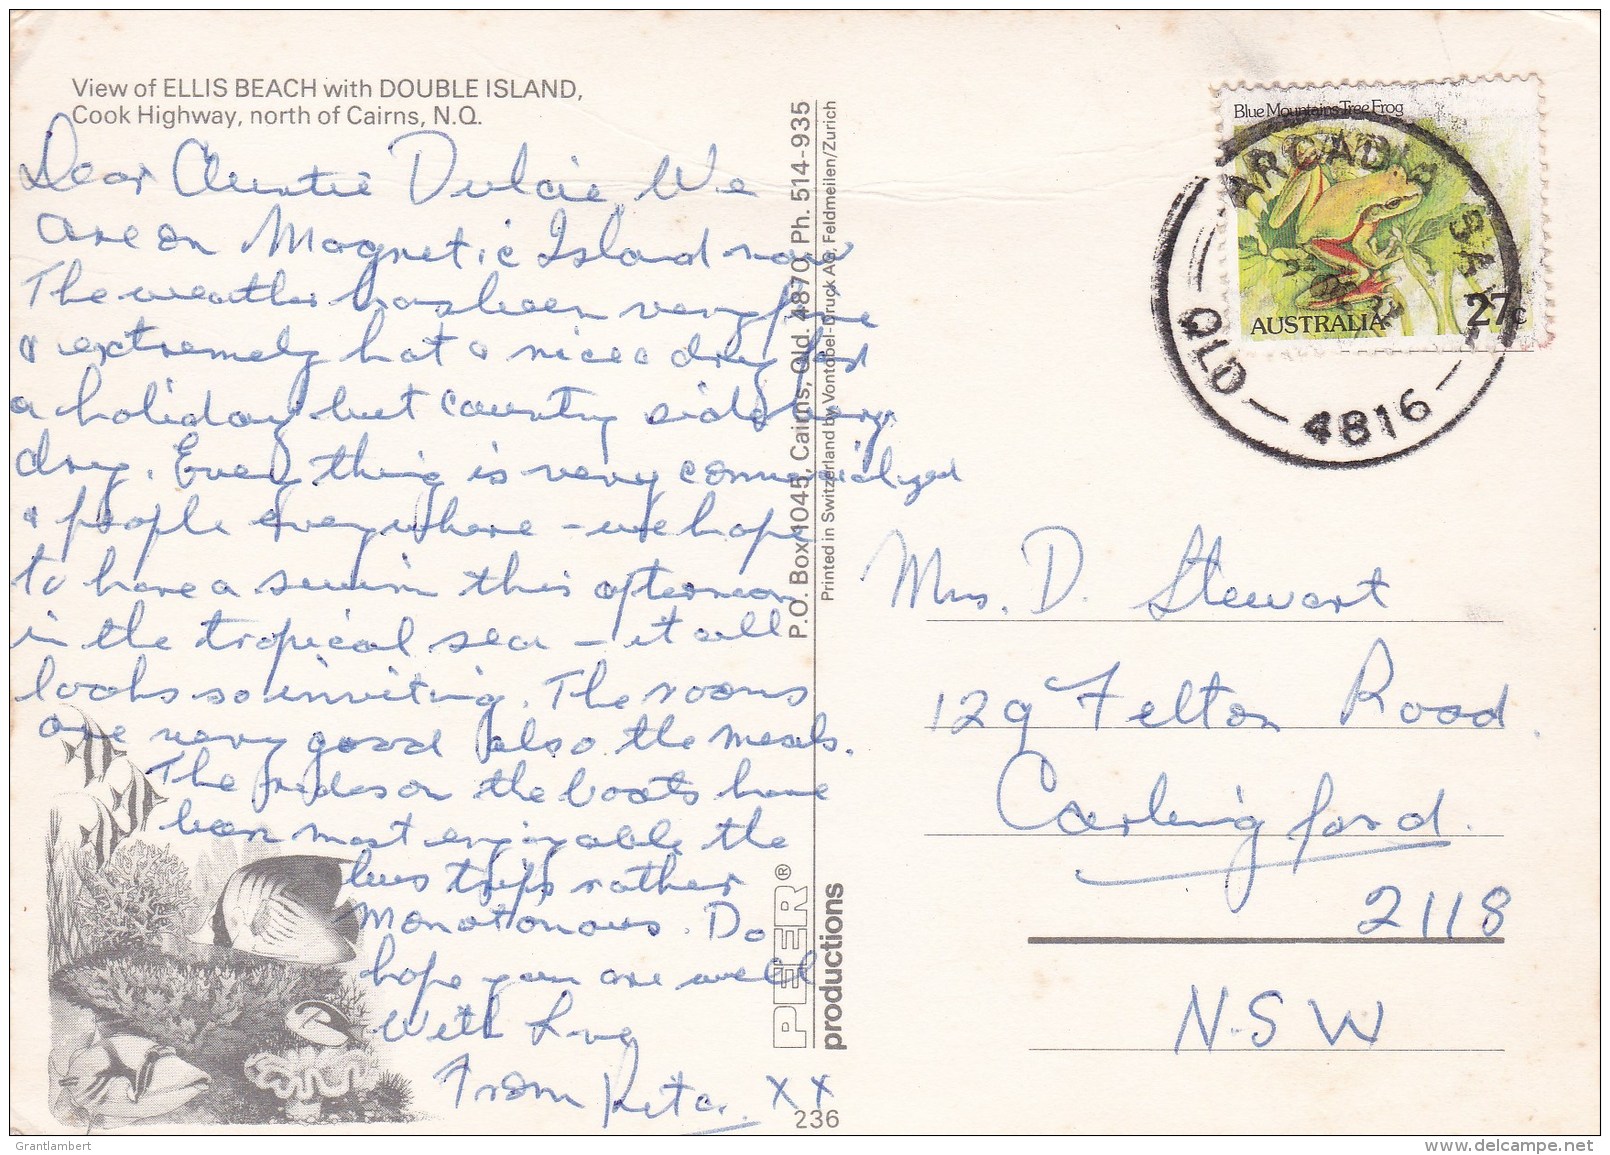 View of ELLIS BEACH with DOUBLE ISLAND,
Cook Highway, north of Cairns, N.Q.
Dear Auntie Dulcie, We
are on Magnetic Island now
The weather has been very fine
& extremely hot & nice & dry for
a holiday but country side very
dry. Every thing is very commercialized
& people everywhere - we hope
to have a swim this afternoon
in the tropical sea - it all
looks so inviting. The rooms
are very good also the meals.
The rides on the boats have
been most enjoyable the
bus trips rather
monotonous. Do
hope you are well
With Love
From Reta. X X
236
P.O. Box 1045, Cairns, Qld. 4870, Ph. 514-935
Printed in Switzerland by Vontobel-Druck AG, Feldmeilen/Zurich
PEER®
productions
Blue Mountains Tree Frog
AUSTRALIA 27c
ARCADIA BAY
QLD - 4816 -
Mrs. D. Stewart
129 Felton Road.
Carlingford.
2118
N.S W
Grantlambert
www.delcampe.net